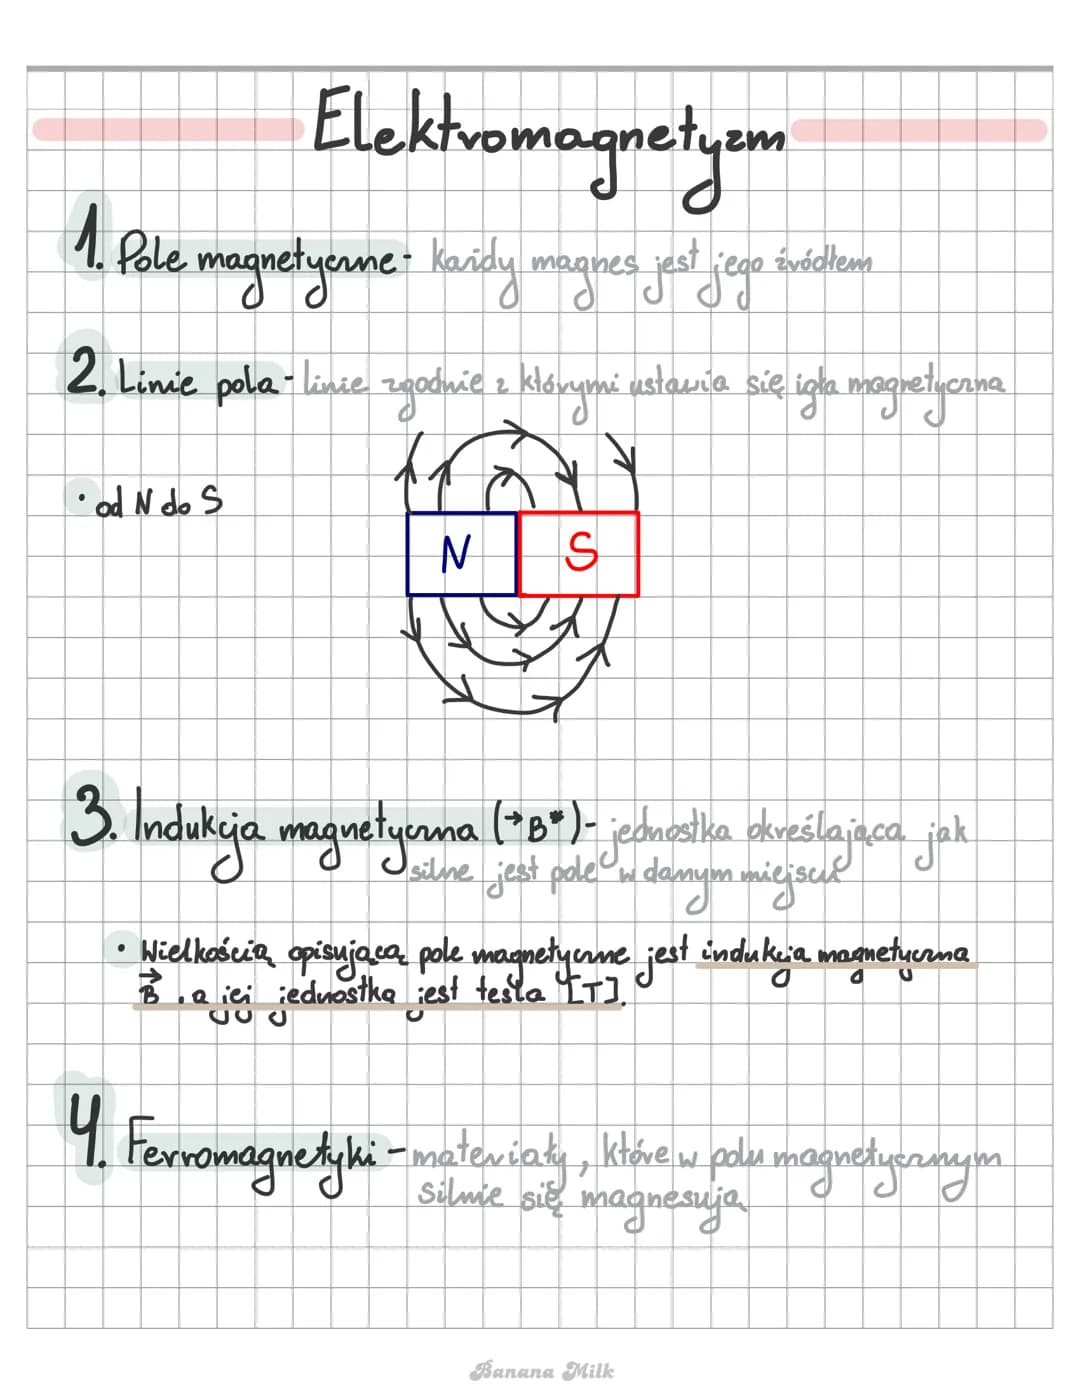 Elektromagnetyzm
1. Pole magnetyczne - każdy magnes jest jego źródłem
2. Linie pola - linie zgodnie z którymi ustawia się igła magnetyczna
• od N do S
N S
3. Indukcja magnetyczna (→B*) - jednostka określająca jak
silne jest pole w danym miejscu
• Wielkością opisującą pole magnetyczne jest indukcja magnetyczna
B⃗, a jej jednostką jest tesla [T].
4. Ferromagnetyki - materiały, które w polu magnetycznym
silnie się magnesują
Banana Milk